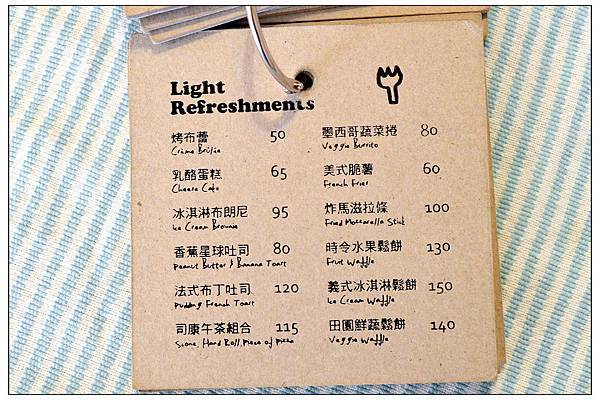 Light
Refreshments
烤布蕾 50
Crème Brûlée
乳酪蛋糕 65
Cheese Cake
冰淇淋布朗尼 95
Ice Cream Brownie
香蕉星球吐司 80
Peanut Butter & Banana Toast
法式布丁吐司 120
Pudding French Toast
司康午茶組合 115
Scone, Hard Roll, Piece of Pizza
墨西哥蔬菜捲 80
Veggie Burrito
美式脆薯 60
French Fries
炸馬滋拉條 100
Fried Mozzarella Stick
時令水果鬆餅 130
Fruit Waffle
義式冰淇淋鬆餅 150
Ice Cream Waffle
田園鮮蔬鬆餅 140
Veggie Waffle